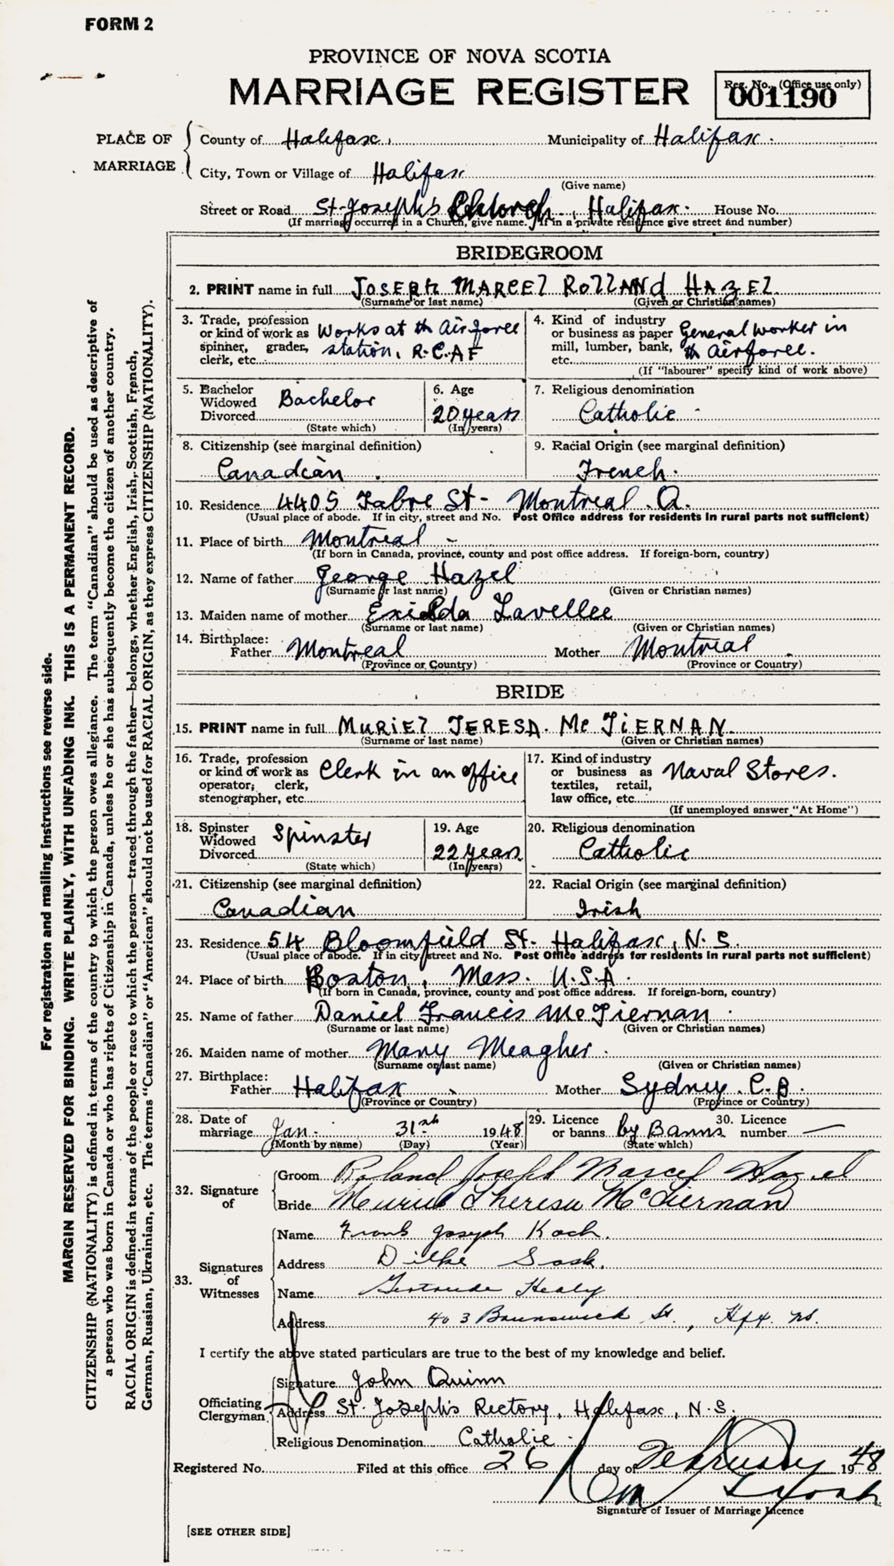 FORM 2
PROVINCE OF NOVA SCOTIA
MARRIAGE REGISTER
Reg. No. (Office use only)
001190
PLACE OF MARRIAGE
County of Halifax Municipality of Halifax.
City, Town or Village of Halifax
(Give name)
Street or Road St. Joseph's Church, Halifax. House No.
(If marriage occurred in a Church, give name. If in a private residence give street and number)
BRIDEGROOM
2. PRINT name in full JOSEPH MARCEL ROLLAND HAZEL
(Surname or last name) (Given or Christian names)
3. Trade, profession or kind of work as spinner, grader, clerk, etc. Works at th Airforce station, R.C.A.F
4. Kind of industry or business as paper mill, lumber, bank, etc. General worker in th Airforce.
(If "labourer" specify kind of work above)
5. Bachelor Widowed Divorced Bachelor
(State which)
6. Age 20 years
(In years)
7. Religious denomination
Catholic
8. Citizenship (see marginal definition)
Canadian
9. Racial Origin (see marginal definition)
French.
10. Residence 4405 Fabre St- Montreal Q.
(Usual place of abode. If in city, street and No. Post Office address for residents in rural parts not sufficient)
11. Place of birth Montreal -
(If born in Canada, province, county and post office address. If foreign-born, country)
12. Name of father George Hazel
(Surname or last name) (Given or Christian names)
13. Maiden name of mother Exielda Lavellee
(Surname or last name) (Given or Christian names)
14. Birthplace:
Father Montreal Mother Montreal
(Province or Country) (Province or Country)
BRIDE
15. PRINT name in full MURIEL TERESA. McTIERNAN.
(Surname or last name) (Given or Christian names)
16. Trade, profession or kind of work as operator, clerk, stenographer, etc. Clerk in an office
17. Kind of industry or business as textiles, retail, law office, etc. Naval Stores.
(If unemployed answer "At Home")
18. Spinster Widowed Divorced Spinster
(State which)
19. Age 22 years
(In years)
20. Religious denomination
Catholic
21. Citizenship (see marginal definition)
Canadian
22. Racial Origin (see marginal definition)
Irish
23. Residence 54 Bloomfield St. Halifax, N.S.
(Usual place of abode. If in city, street and No. Post Office address for residents in rural parts not sufficient)
24. Place of birth Boston, Mass. U.S.A.
(If born in Canada, province, county and post office address. If foreign-born, country)
25. Name of father Daniel Francis McTiernan
(Surname or last name) (Given or Christian names)
26. Maiden name of mother Mary Meagher.
(Surname or last name) (Given or Christian names)
27. Birthplace:
Father Halifax Mother Sydney. C.B.
(Province or Country) (Province or Country)
28. Date of marriage Jan. 31st 1948
(Month by name) (Day) (Year)
29. Licence or banns by Banns
(State which)
30. Licence number —
32. Signature of
Groom Roland Joseph Marcel Hazel
Bride Muriel Theresa McTiernan
33. Signatures of Witnesses
Name Frank Joseph Koch.
Address Dilke Sask.
Name Gertrude Healy
Address 403 Brunswick St., Hfx. NS.
I certify the above stated particulars are true to the best of my knowledge and belief.
Officiating Clergyman
Signature John Quinn
Address St. Joseph's Rectory, Halifax, N.S.
Religious Denomination Catholic
Registered No. Filed at this office 26 day of February 1948
Signature of Issuer of Marriage Licence
[SEE OTHER SIDE]
For registration and mailing instructions see reverse side.
MARGIN RESERVED FOR BINDING. WRITE PLAINLY, WITH UNFADING INK. THIS IS A PERMANENT RECORD.
CITIZENSHIP (NATIONALITY) is defined in terms of the country to which the person owes allegiance. The term "Canadian" should be used as descriptive of
a person who was born in Canada or who has rights of Citizenship in Canada, unless he or she has subsequently become the citizen of another country.
RACIAL ORIGIN is defined in terms of the people or race to which the person—traced through the father—belongs, whether English, Irish, Scottish, French,
German, Russian, Ukrainian, etc. The terms "Canadian" or "American" should not be used for RACIAL ORIGIN, as they express CITIZENSHIP (NATIONALITY).